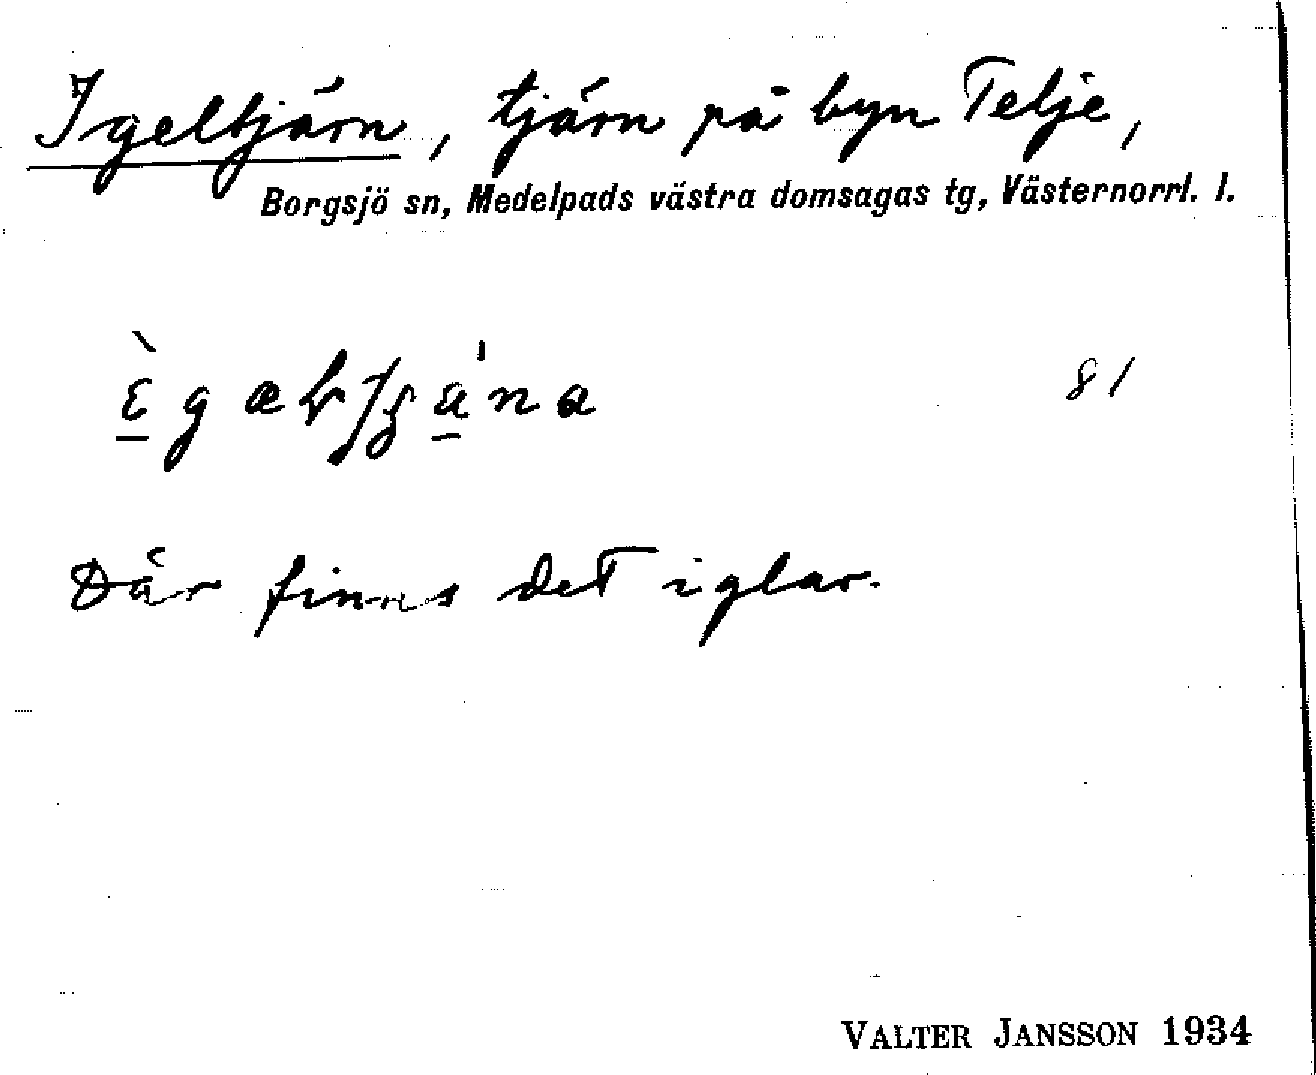 Igeltjärn, tjärn på byn Telje,
Borgsjö sn, Medelpads västra domsagas tg, Västernorrl. l.
81
Där finns det iglar.
VALTER JANSSON 1934